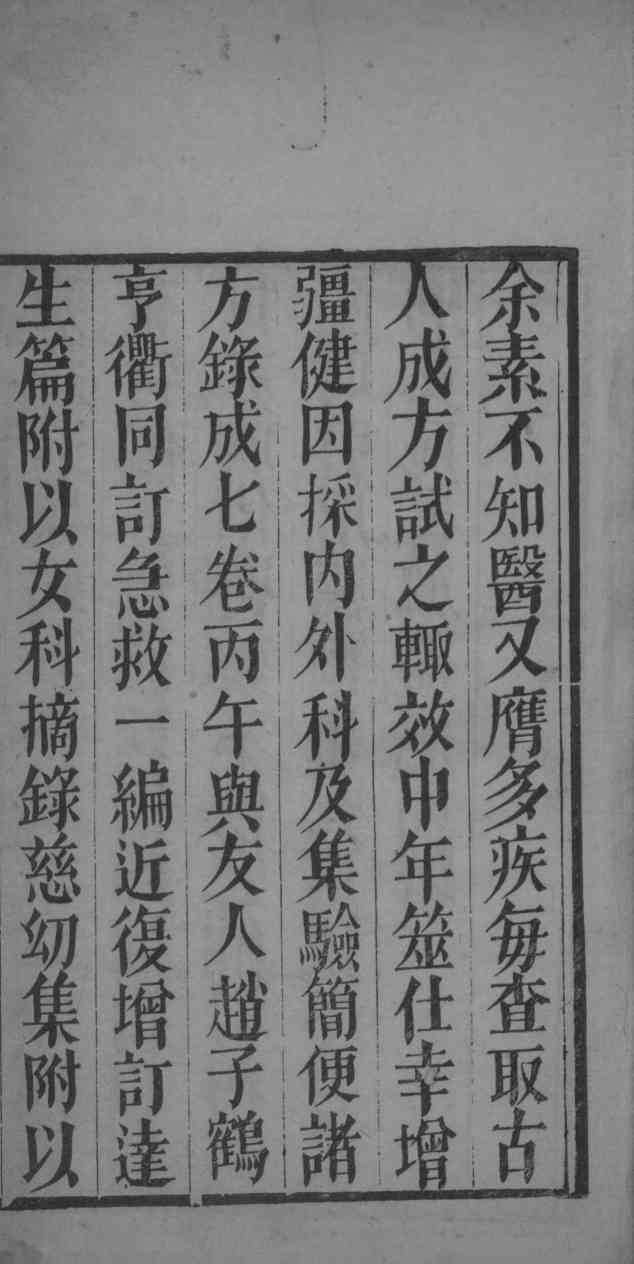 余素不知醫又膺多疾毎查取古
人成方試之輙效中年筮仕幸增
疆健因採内外科及集驗簡便諸
方錄成七卷丙午與友人趙子鶴
亨衢同訂急救一編近復增訂達
生篇附以女科摘錄慈幼集附以